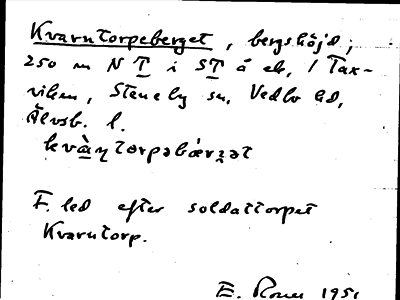 Kvarntorpeberget, bergshöjd;
250 m N T i ST å ek, / Tax-
viken, Steneby sn, Vedbo hd,
Älvsb. l.
kvὰꞑtorpəbær̥ʒət
F. led efter soldattorpet
Kvarntorp.
E. 1951